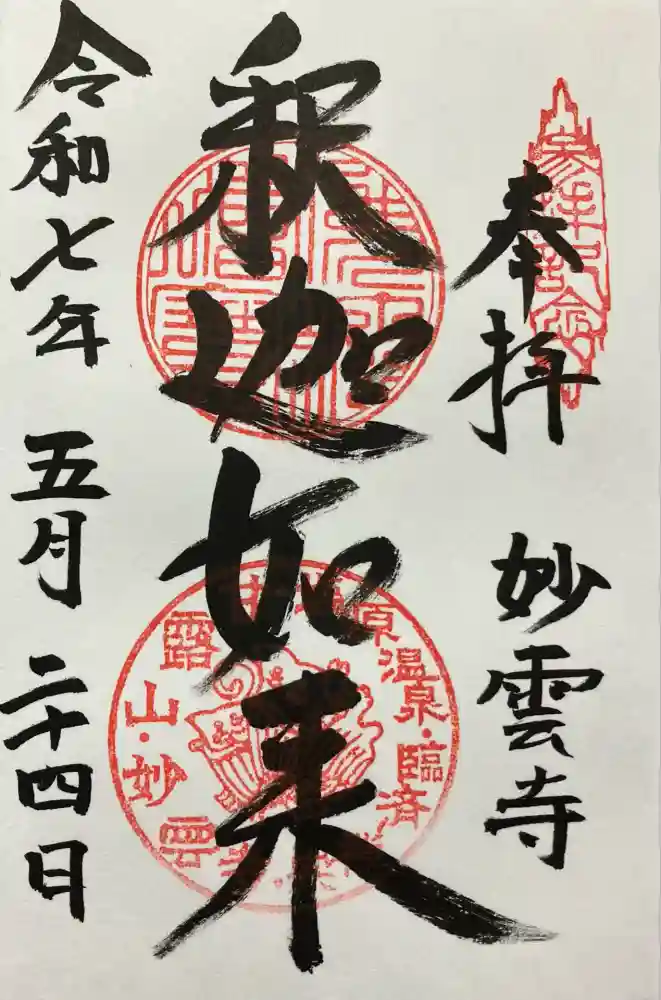 奉拝
妙雲寺
釈迦如来
令和七年 五月 二十四日
参拝記念
原温泉・臨済
甘露山・妙雲